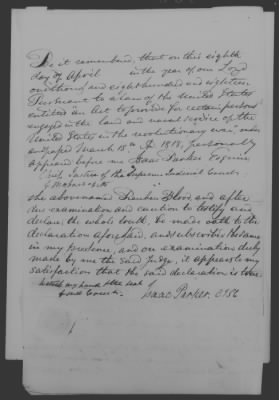 Be it remembered, that on this eighth
day of April in the year of our Lord
one thousand and eight hundred and eighteen
Pursuant to a law of the United States
entitled "an Act to provide for certain persons
engaged in the land and naval service of the
United States in the revolutionary war," under
passed March 18th A.D. 1818, personally
appeared before me Isaac Parker Esquire
Chief Justice of the Supreme Judicial Court
of Massachusetts
the abovenamed Reuben Blood, and after
due examination and caution to testify and
declare the whole truth, he made oath to the
declaration aforesaid, and subscribed the same
in my presence, and on examination duly
made by me the said Judge, it appears to my
satisfaction that the said declaration is true
Witness my hand & the seal of
Isaac Parker. C J S C